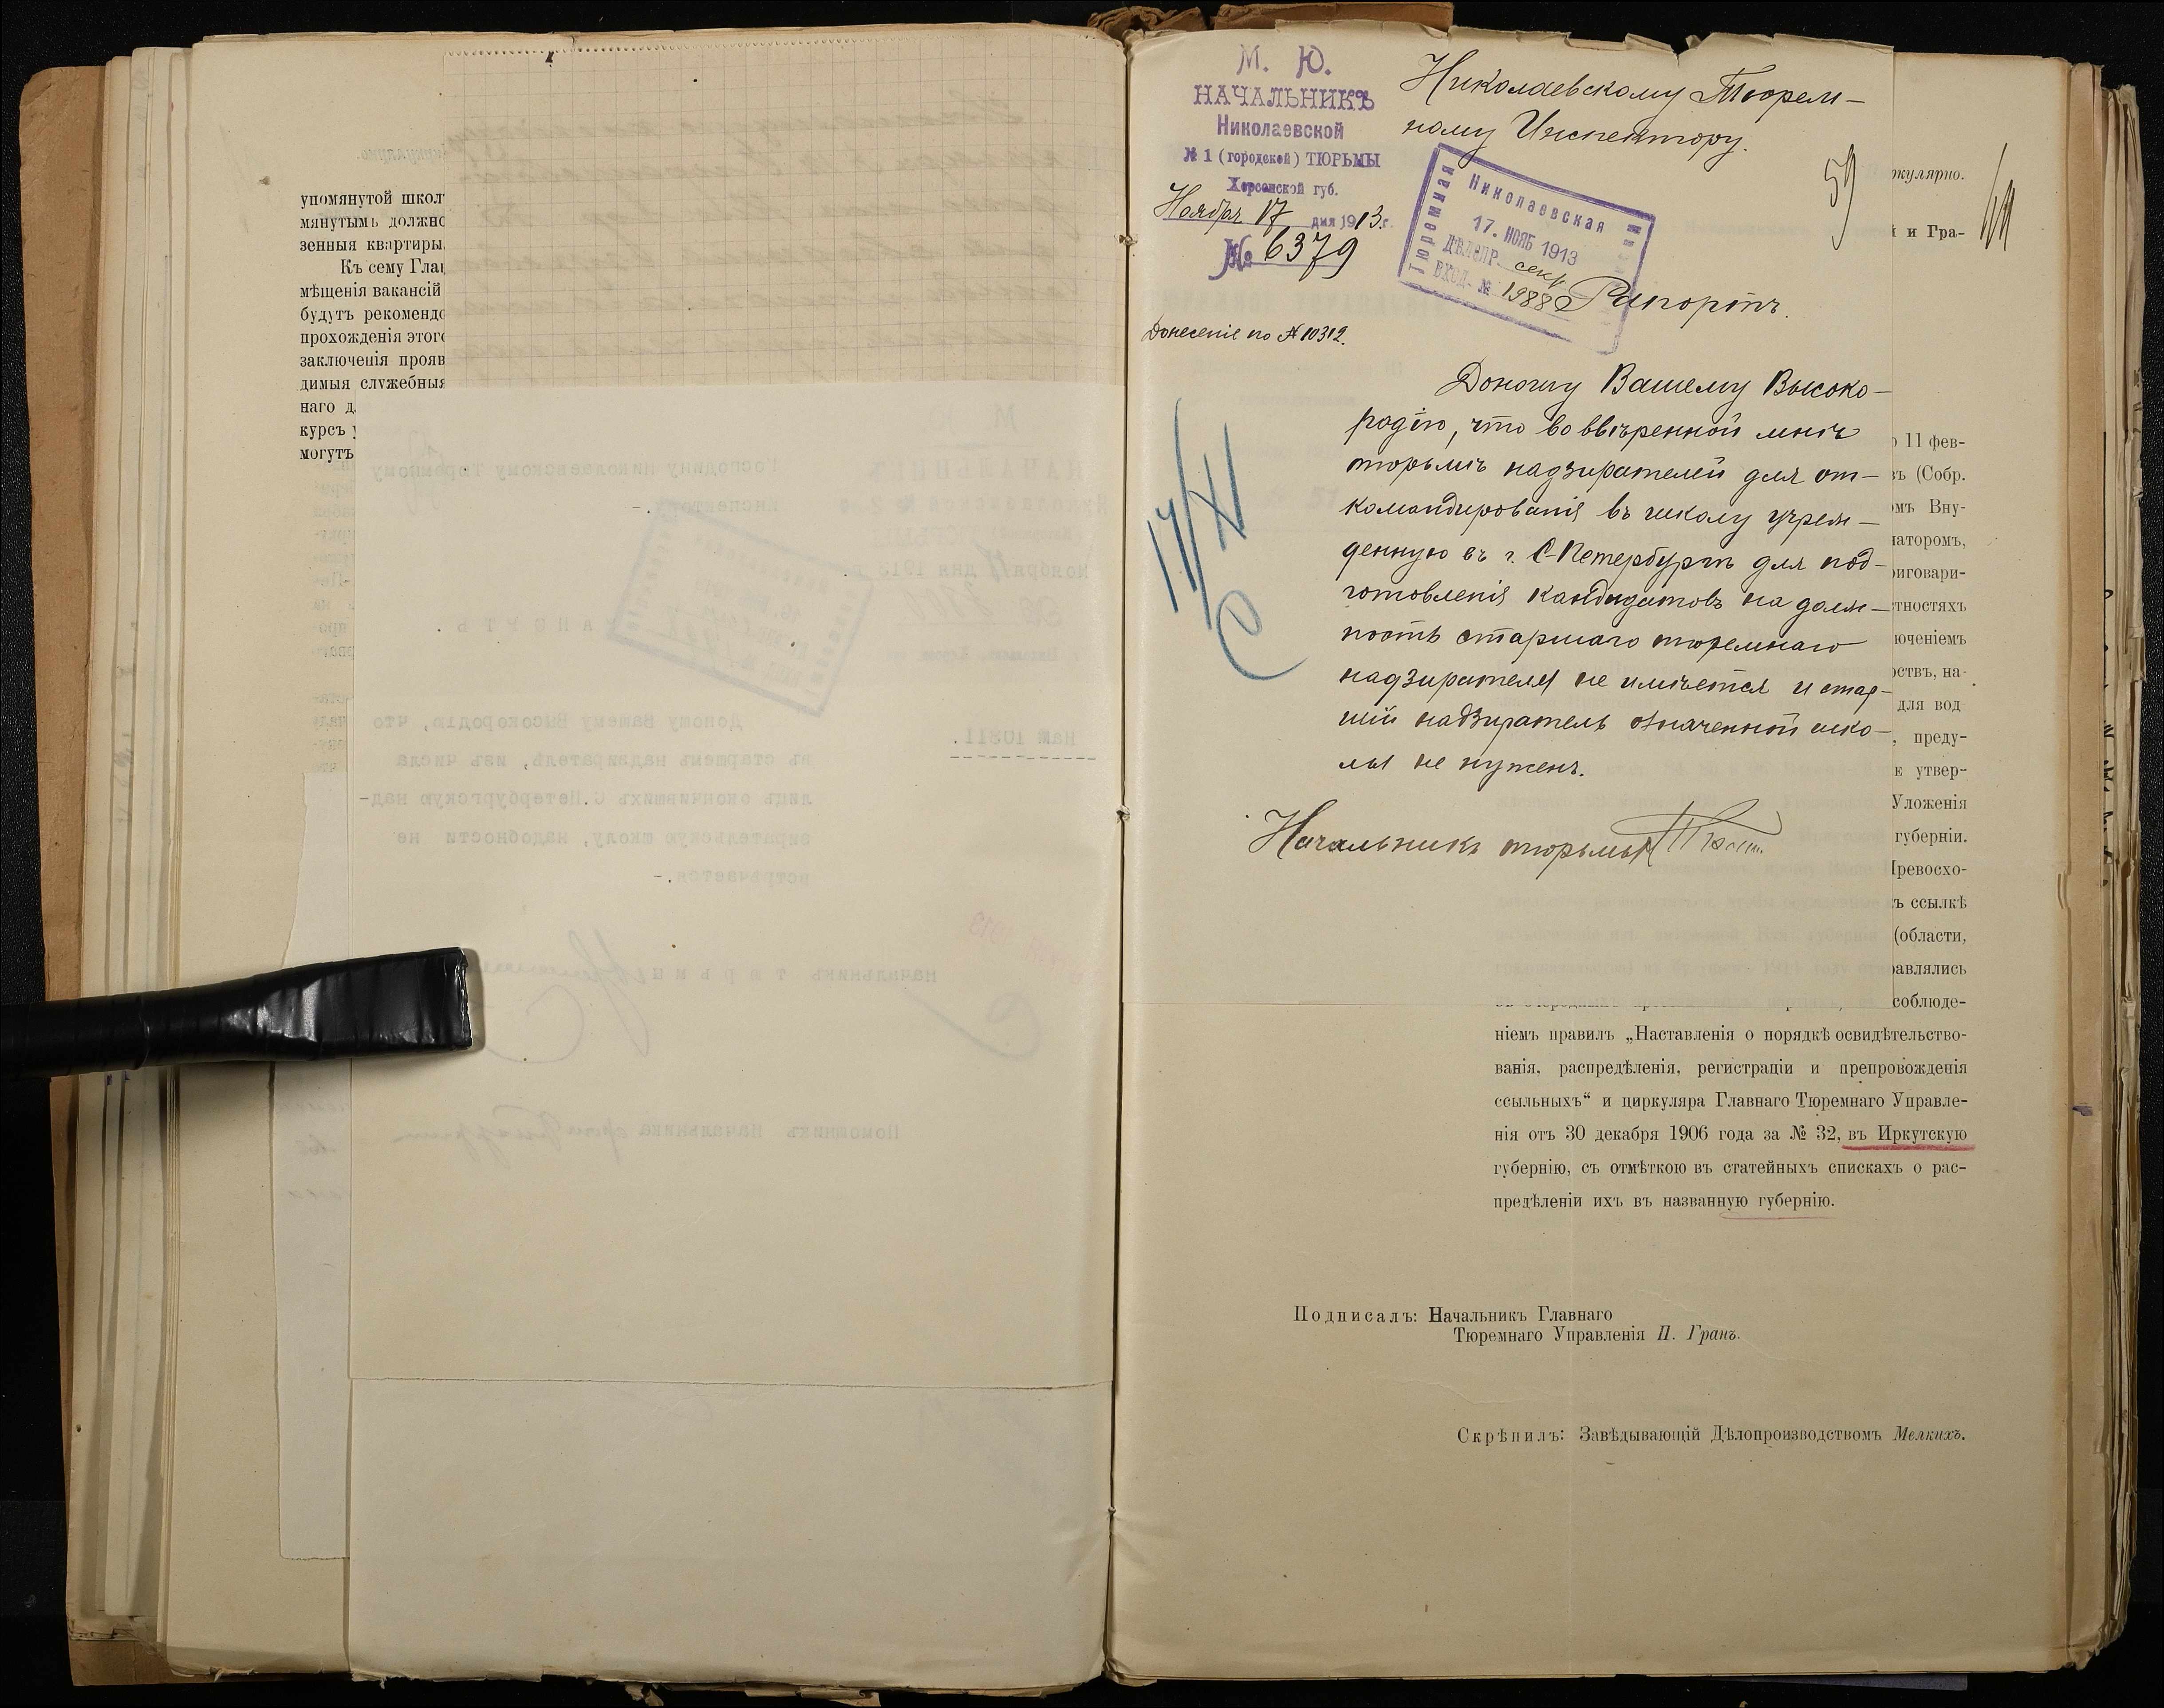 упомянутой школ
мянутымъ должно
зенныя квартиры
Къ сему Глав
мѣщенія вакансій
будутъ рекомендо
прохожденія этого
заключенія прояв
димыя служебныя
наго д
курсъ у
могутъ
М. Ю.
НАЧАЛЬНИКЪ
Николаевской
№ 1 (городской) ТЮРЬМЫ
Херсонской губ.
Ноября 17 дня 1913 г.
№ 6379
Донесеніе по № 10312.
Николаевскому Тюрем-
ному Инспектору.
Николаевская
Тюремная
17. НОЯБ 1913
ДѢЛОПР. секр
ВХОД. № 1988
Рапортъ.
59
Доношу Вашему Высоко-
родію, что во ввѣренной мнѣ
тюрьмѣ надзирателей для от-
командированія въ школу учреж-
денную въ г. С-Петербургѣ для под-
готовленія кандидатовъ на долж-
ность старшаго тюремнаго
надзирателя не имѣется и стар-
шій надзиратель означенной шко-
лы не нуженъ.
Начальникъ тюрьмы
17/XI
ркулярно.
й и Гра-
о 11 фев-
въ (Собр.
омъ Вну-
наторомъ,
риговари-
тностяхъ
юченіемъ
рствъ, на-
для вод
, преду-
е утвер-
Уложенія
губерніи.
Превосхо-
ъ ссылкѣ
(области,
равлялись
соблюде-
ніемъ правилъ „Наставленія о порядкѣ освидѣтельство-
ванія, распредѣленія, регистраціи и препровожденія
ссыльныхъ“ и циркуляра Главнаго Тюремнаго Управле-
нія отъ 30 декабря 1906 года за № 32, въ Иркутскую
губернію, съ отмѣткою въ статейныхъ спискахъ о рас-
предѣленіи ихъ въ названную губернію.
Подписалъ: Начальникъ Главнаго
Тюремнаго Управленія П. Гранъ.
Скрѣпилъ: Завѣдывающій Дѣлопроизводствомъ Мелкихъ.